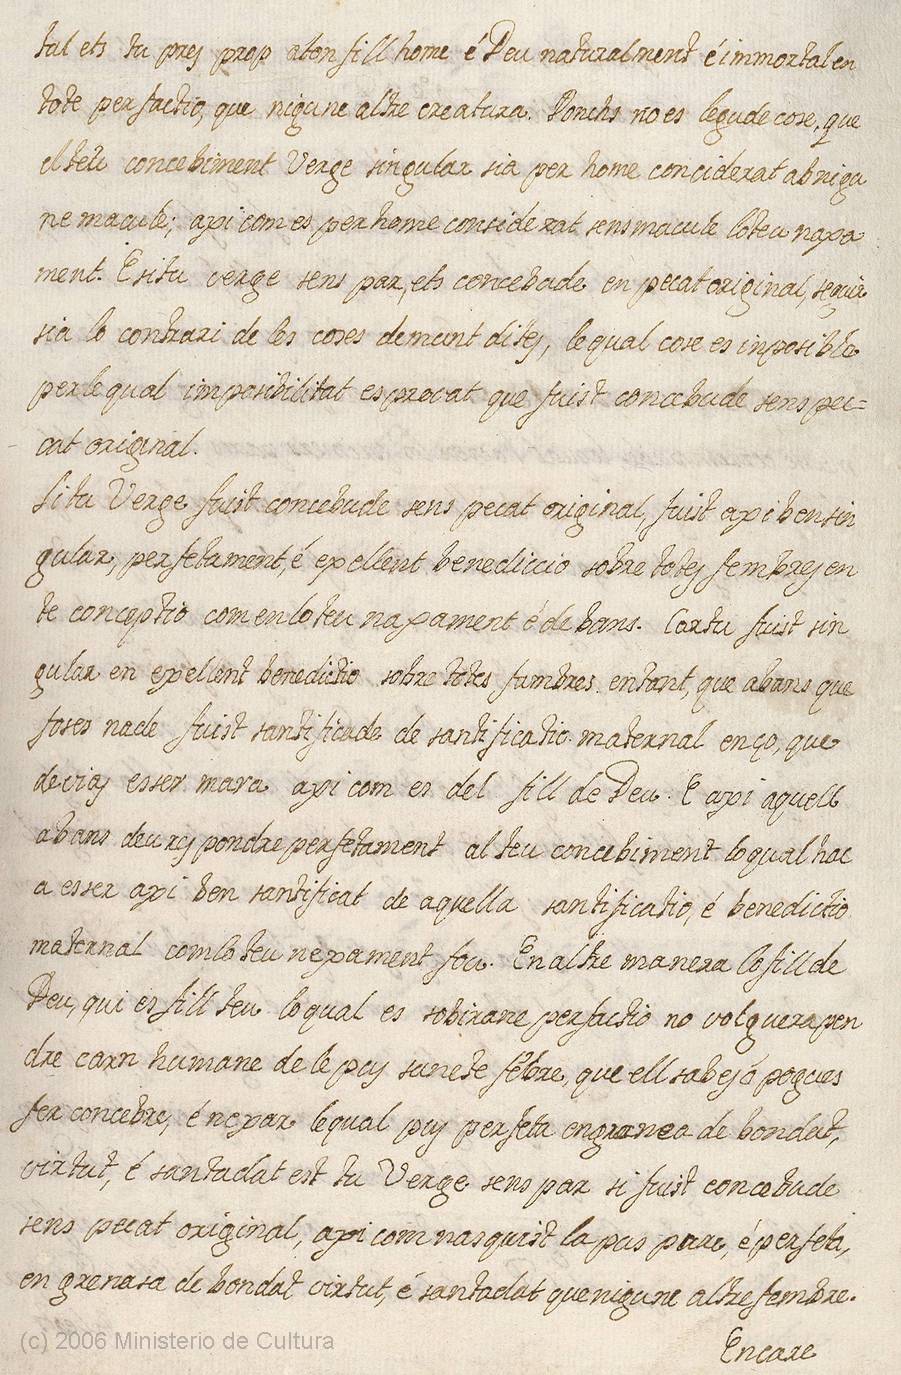 tal ets tu pres prop aton fill home é Deu naturalment é immortal en
tote perfactio, que nigune altre creatura. Donchs no es legude cose, que
el teu concebiment Verge singular sia per home conciderat ab nigu
ne macule; axi com es per home considerat sens macule lo teu naxa
ment. E si tu verge sens par, ets concebude en pecat original, seguir
sia lo contrari de les coses demunt dites, le qual cose es imposible
per le qual imposibilitat es provat que fuist concebude sens pec=
cat original.
Si tu Verge fuist concebude sens pecat original, fuist axi ben sin
gular, perfetament, é exellent benediccio sobre totes fembres en
te conceptio com en lo teu naxament é de bans. Car tu fuist sin
gular en exellent benedictio sobre totes fambres. en tant, que abans que
foses nade fuist santificade de santificatio maternal en ço, que
devias esser mara axi com es del fill de Deu. E axi aquell
abans deu respondre perfetament al teu concebiment lo qual hac
a esser axi ben santificat de aquella santificatio, é benedictio
maternal com lo teu nexament fou. En altre manera lo fill de
Deu, qui es fill teu lo qual es sobirane perfactio no volguera pen
dre carn humane de le puy sancte fébre, que ell sabes ó pogues
fer concebre, é nexar le qual puy perfeta en granea de bondat,
virtut, é santadat est tu Verge sens par si fuist concebude
sens pecat original, axi com nasquist la pus pare, é perfeta,
en grenasa de bondat virtut, é santadat que nigune altre fembre.
Encare
(c) 2006 Ministerio de Cultura